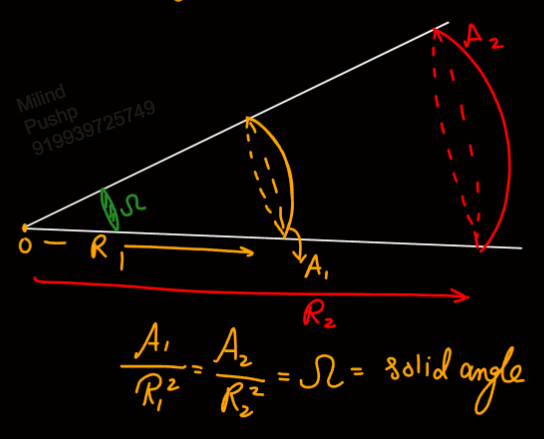 A₂
Milind
Pushp
919939725749
Ω
O – R₁
A₁
R₂
A₁/R₁² = A₂/R₂² = Ω = solid angle